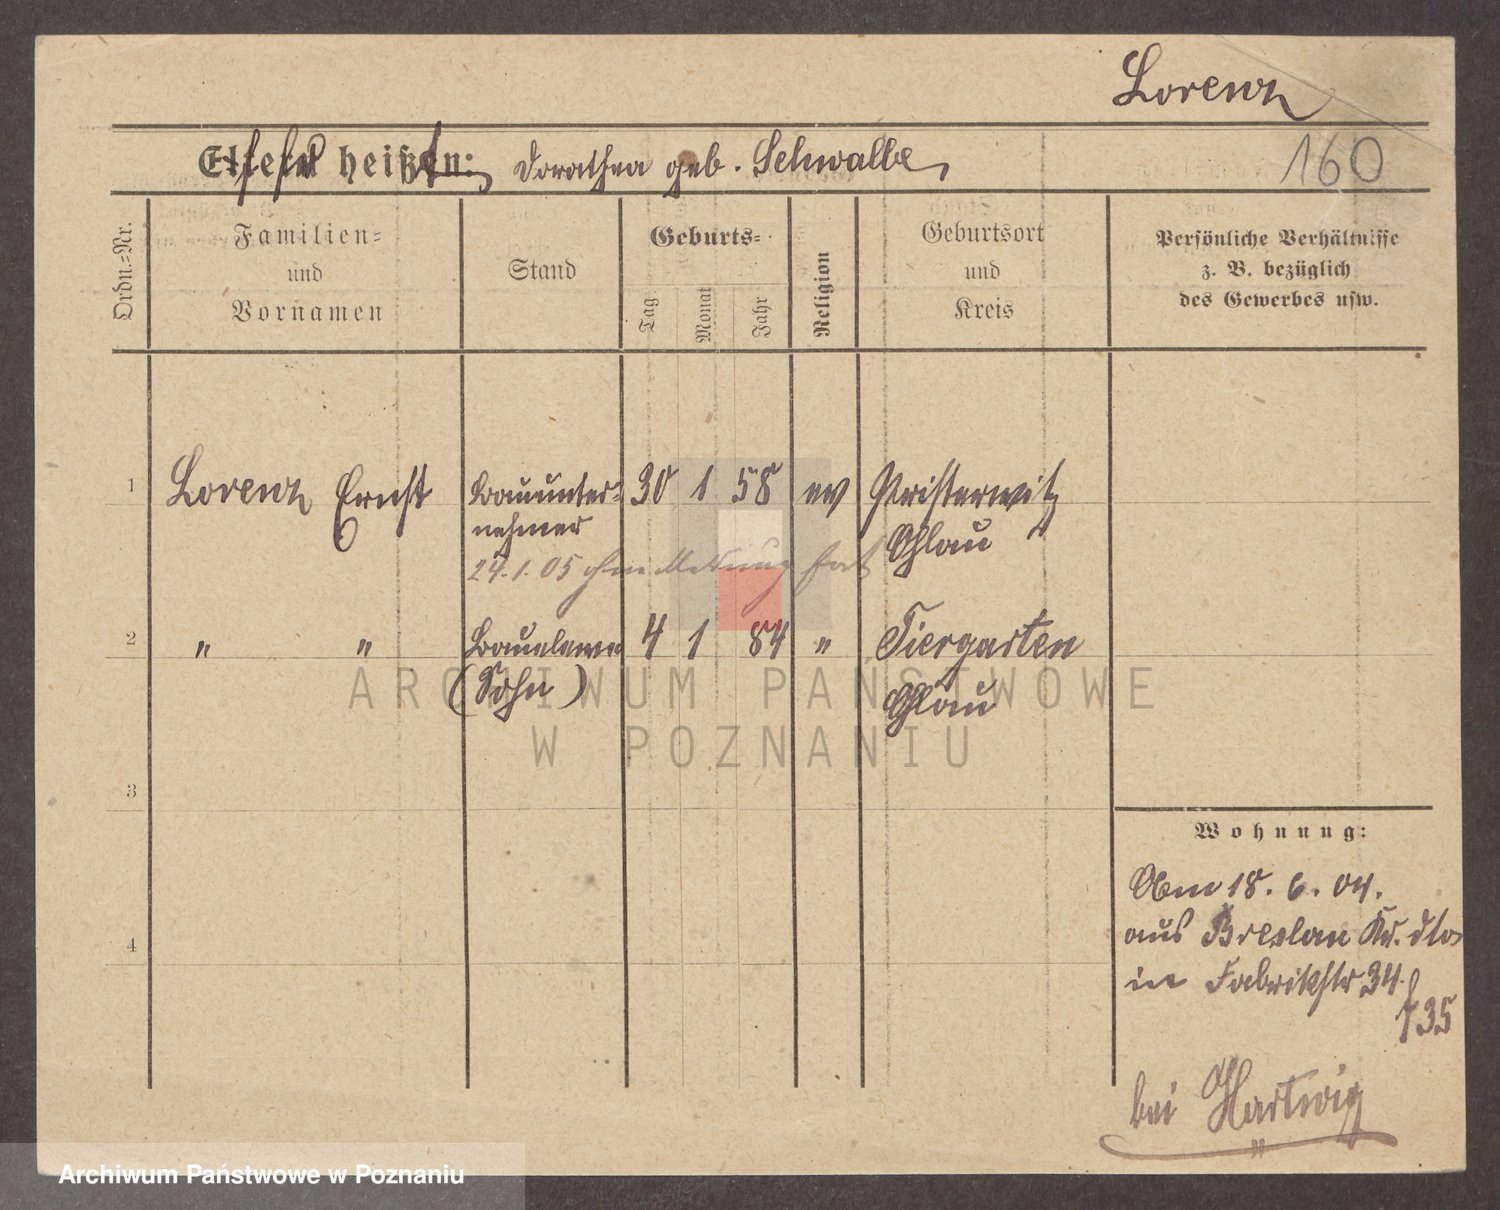 Lorenz
Eltern heißen: Dorothea geb. Schwalbe,
160
Ordn.=Nr.
Familien=
und
Vornamen
Stand
Geburts=
Tag
Monat
Jahr
Religion
Geburtsort
und
Kreis
Persönliche Verhältnisse
z. B. bezüglich
des Gewerbes usw.
1 Lorenz Ernst Bauunter= 30 1 58 ev Peisterwitz
nehmer Ohlau
24.1.05 ohne Meldung fort
2 " " Baueleve 4 1 84 " Tiergarten
(Sohn) Ohlau
3
4
Wohnung:
Am 18. 6. 04.
aus Breslau Kr. dto
in Fabrikstr 34.
35
bei Hartwig
ARCHIWUM PAŃSTWOWE
W POZNANIU
Archiwum Państwowe w Poznaniu